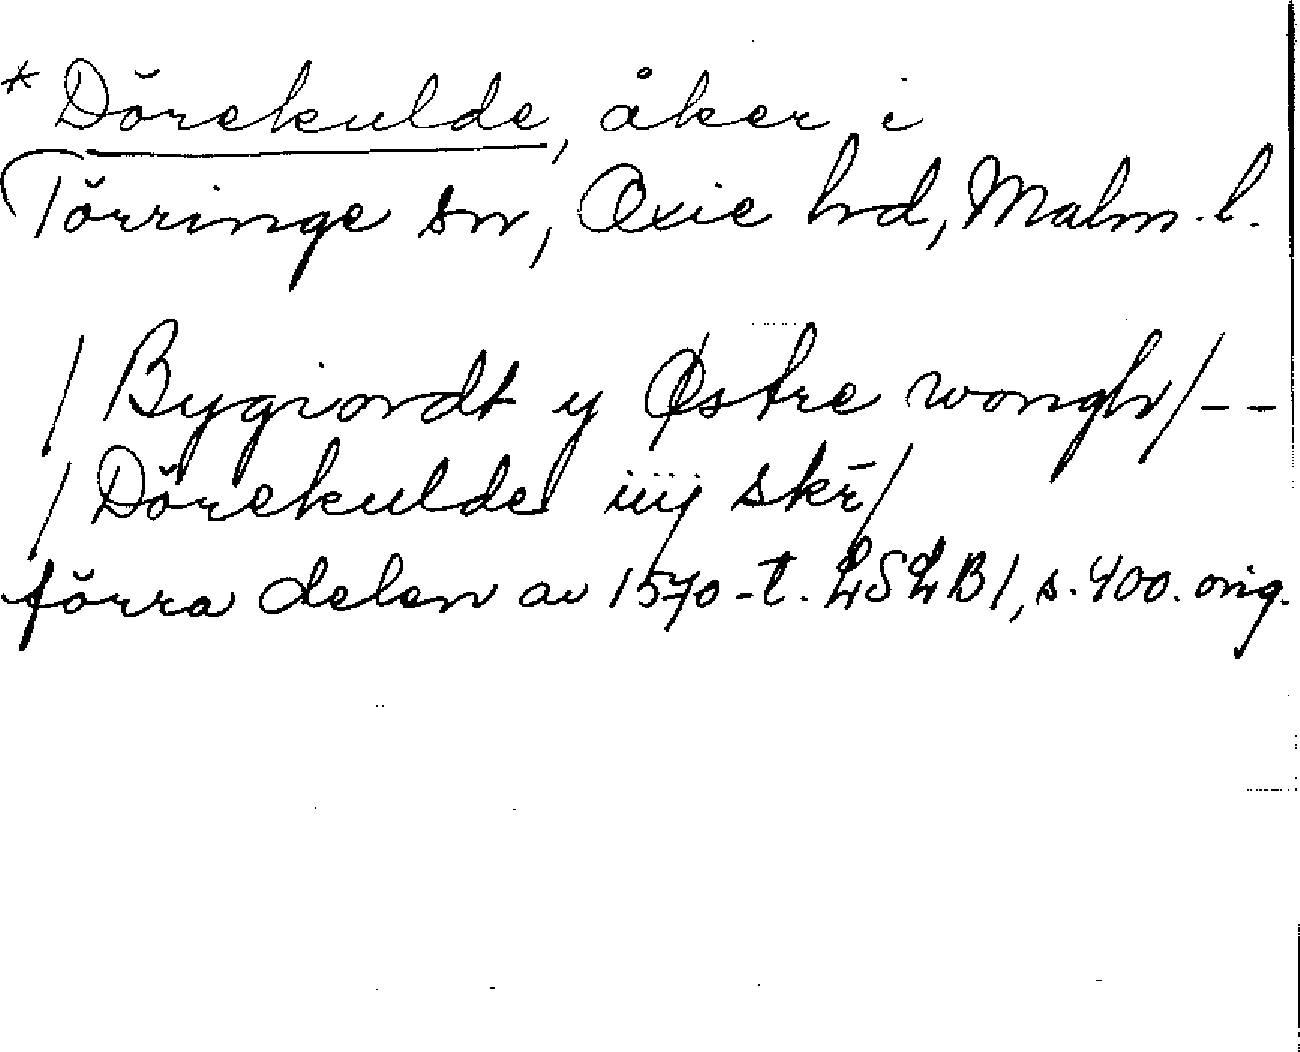 * Dörekulde, åker i
Törringe sn, Oxie hd, Malm. l.
/ Bygiordt y Østre wongh / - -
/ Dörekulde iiij skr̄ /
förra delen av 1570-t. LSLB 1, s. 400. orig.